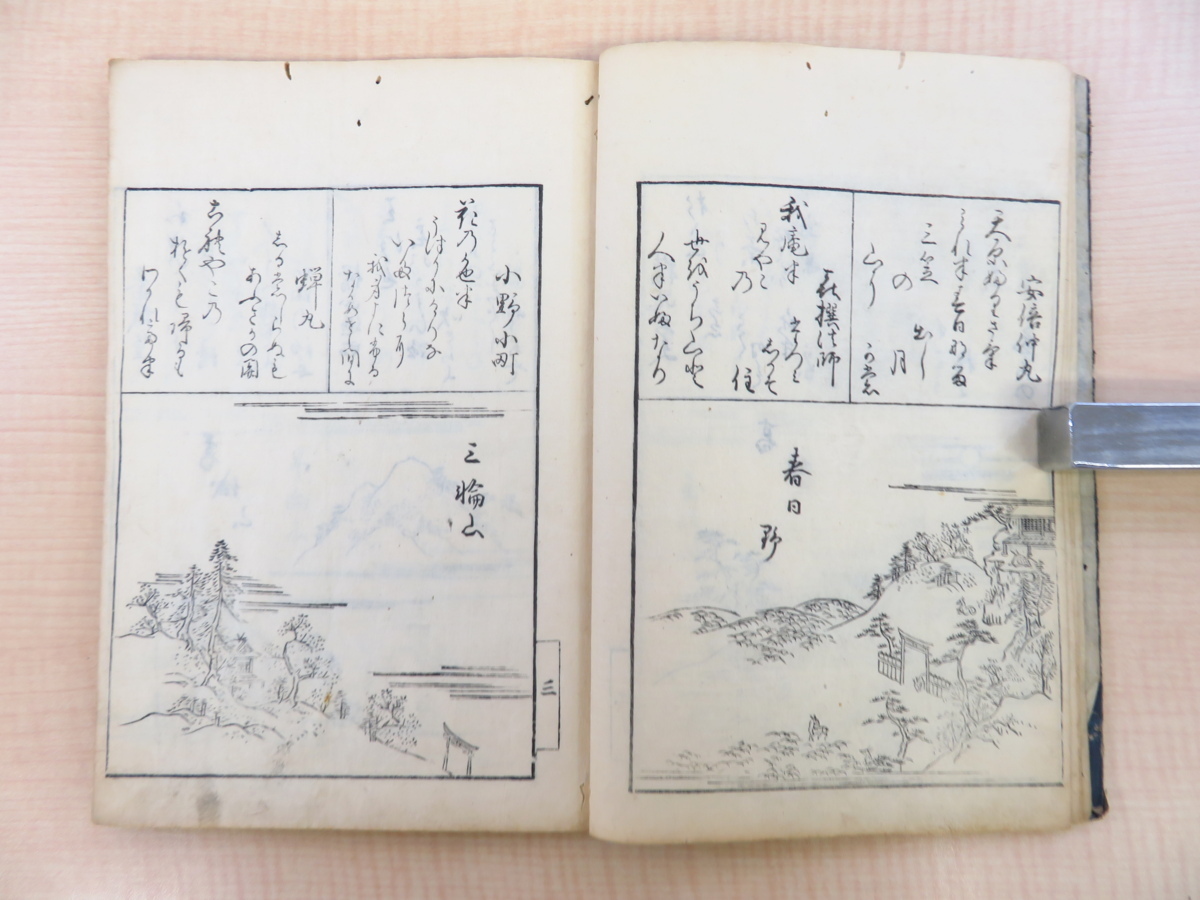 安倍仲丸
天原ふりさけ
みれは春日なる
三笠
の
山に
出し
月
かも
喜撰法師
我庵は
みやこ
乃
たつみ
しかそ
住
世をうち山と
人はいふなり
春日野
小野小町
花乃色は
うつりにけりな
いたつらに
我身よにふる
なかめせし間に
蝉丸
これやこ乃
行くも帰るも
わかれては
しるもしらぬも
あふさかの関
三輪山
三